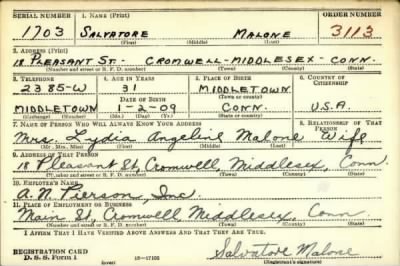 SERIAL NUMBER 1. NAME (Print) ORDER NUMBER
1703 SALVATORE MALONE 3113
(First) (Middle) (Last)
2. ADDRESS (Print)
18 PLEASANT ST. CROMWELL-MIDDLESEX-CONN.
(Number and street or R. F. D. number) (Town) (County) (State)
3. TELEPHONE 4. AGE IN YEARS 5. PLACE OF BIRTH 6. COUNTRY OF CITIZENSHIP
2385-W 31 MIDDLETOWN
DATE OF BIRTH (Town or county)
MIDDLETOWN 1-2-09 CONN. U.S.A.
(Exchange) (Number) (Mo.) (Day) (Yr.) (State or country)
7. NAME OF PERSON WHO WILL ALWAYS KNOW YOUR ADDRESS 8. RELATIONSHIP OF THAT PERSON
Mrs. Lydia Angeline Malone Wife
(Mr., Mrs., Miss) (First) (Middle) (Last)
9. ADDRESS OF THAT PERSON
18 Pleasant St, Cromwell, Middlesex, Conn
(Number and street or R. F. D. number) (Town) (County) (State)
10. EMPLOYER'S NAME
A. N. Pierson, Inc.
11. PLACE OF EMPLOYMENT OR BUSINESS
Main St, Cromwell, Middlesex, Conn
(Number and street or R. F. D. number) (Town) (County) (State)
I AFFIRM THAT I HAVE VERIFIED ABOVE ANSWERS AND THAT THEY ARE TRUE.
REGISTRATION CARD
D. S. S. Form 1 (over) 16-17105 Salvatore Malone
(Registrant's signature)